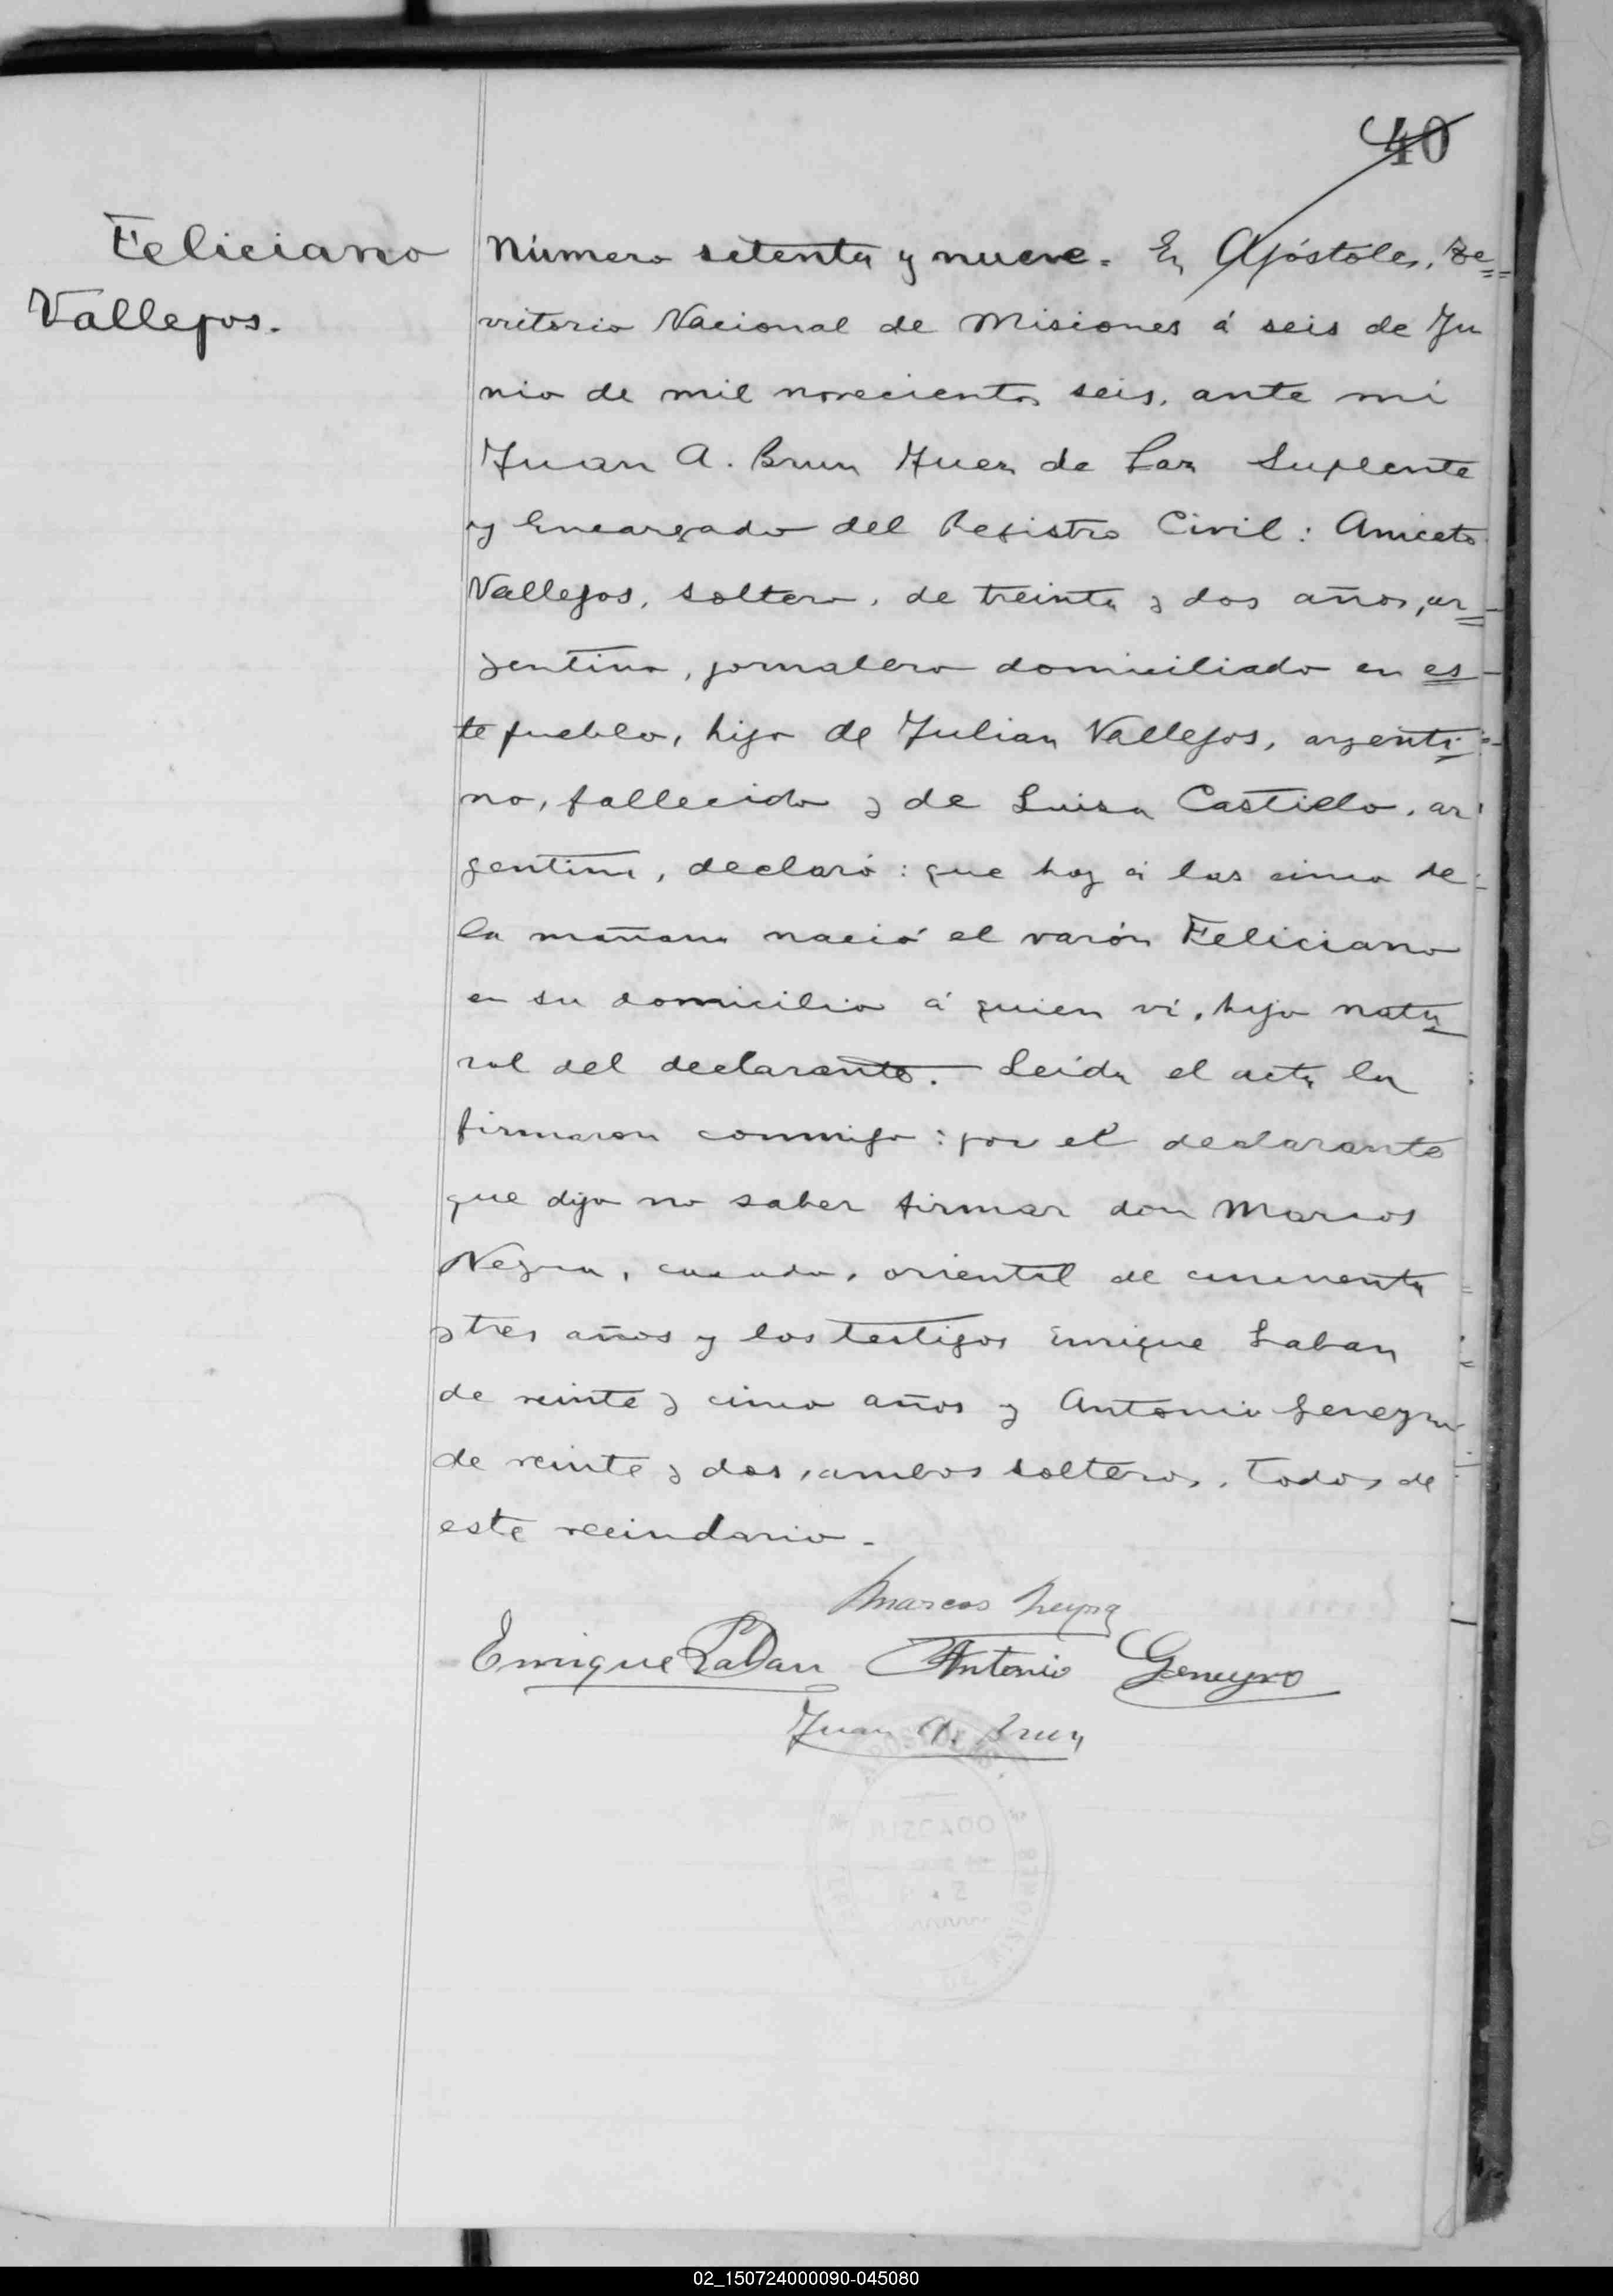 40
Feliciano
Vallejos.
Número setenta y nueve. En Apóstoles, Te=
rritorio Nacional de Misiones á seis de Ju
nio de mil novecientos seis, ante mí
Juan A. Brun Juez de Paz Suplente
y Encargado del Registro Civil: Aniceto
Vallejos, soltero, de treinta y dos años, ar=
gentino, jornalero domiciliado en es-
te pueblo, hijo de Julian Vallejos, argenti-
no, fallecido y de Luisa Castillo, ar
gentina, declaró: que hoy á las cinco de
la mañana nació el varón Feliciano
en su domicilio á quien ví, hijo natu
ral del declarante. Leida el acta la
firmaron conmigo: por el declarante
que dijo no saber firmar don Marcos
casado, oriental de cincuenta
y tres años y los testigos Enrique Laban
de veinte y cinco años y Antonio Geneyro
de veinte y dos, ambos solteros, todos de
este vecindario.
Marcos
Enrique Laban Antonio Geneyro
Juan A. Brun
02_150724000090-045080